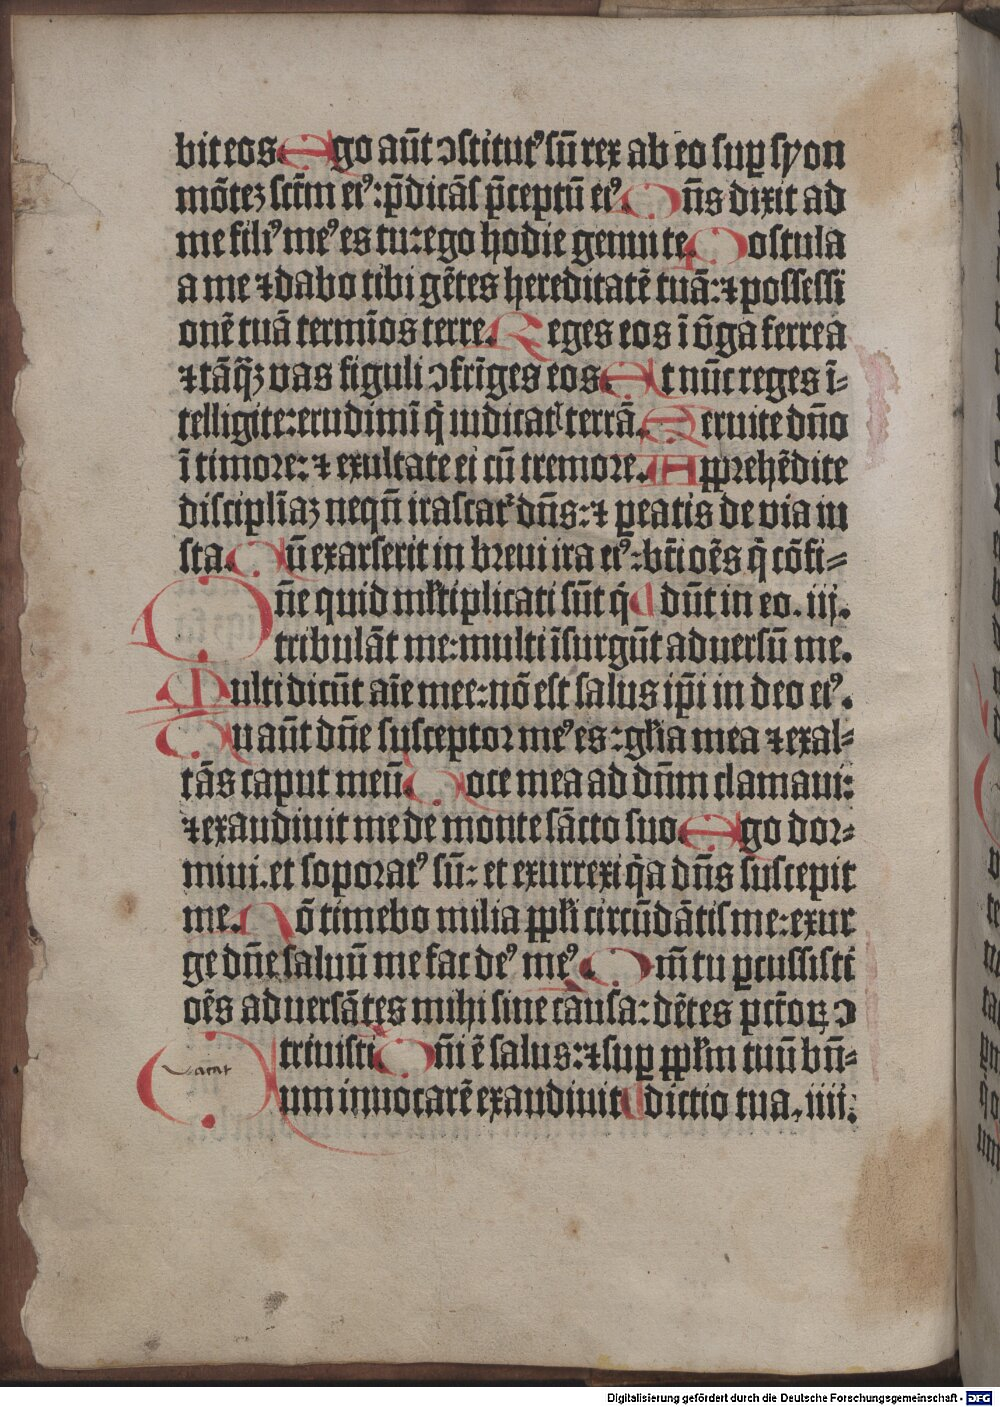 bit eos. Ego aūt ↄstitutꝰ sū rex ab eo sup̱ syon
mōteꝫ sctm̄ eiꝰ: p̄dicās p̄ceptū eiꝰ. Dn̄s dixit ad
me filiꝰ meꝰ es tu: ego hodie genui te. Postula
a me ⁊ dabo tibi gētes hereditatē tuā: ⁊ possessi
onē tuā termīos terre. Reges eos ī v̄ga ferrea
⁊ tāq̄ꝫ vas figuli ↄfrīges eos. Et nūc reges ī⸗
telligite: erudimī q̄ iudicat᷑ terrā. Seruite dn̄o
ī timore: ⁊ exultate ei cū tremore. Apprehēdite
disciplīaꝫ neqn̄ irascat᷑ dn̄s: ⁊ ꝑeatis de via iu
sta. Cū exarserit in breui ira eiꝰ: bt̄i oēs q̄ cōfi⸗
Dn̄e quid mĺtiplicati sūt q̄ dūt in eo. iij.
tribulāt me: multi īsurgūt aduersū me.
Multi dicūt aīe mee: nō est salus ip̄i in deo eiꝰ.
Tu aūt dn̄e susceptor meꝰ es: gĺia mea ⁊ exal⸗
tās caput meū. Voce mea ad dn̄m clamaui:
⁊ exaudiuit me de monte sācto suo. Ego dor⸗
miui. et soporatꝰ sū: et exurrexi q̄a dn̄s suscepit
me. Nō timebo milia ppĺi circūdātis me: exur
ge dn̄e saluū me fac deꝰ meꝰ. Qm̄ tu ꝑcussisti
oēs aduersātes mihi sine causa: dētes pctōꝝ ↄ
triuisti. Dn̄i ē salus: ⁊ sup̱ ppĺm tuū bn̄⸗
Cum inuocarē exaudiuit dictio tua. iiij.
Digitalisierung gefördert durch die Deutsche Forschungsgemeinschaft - DFG